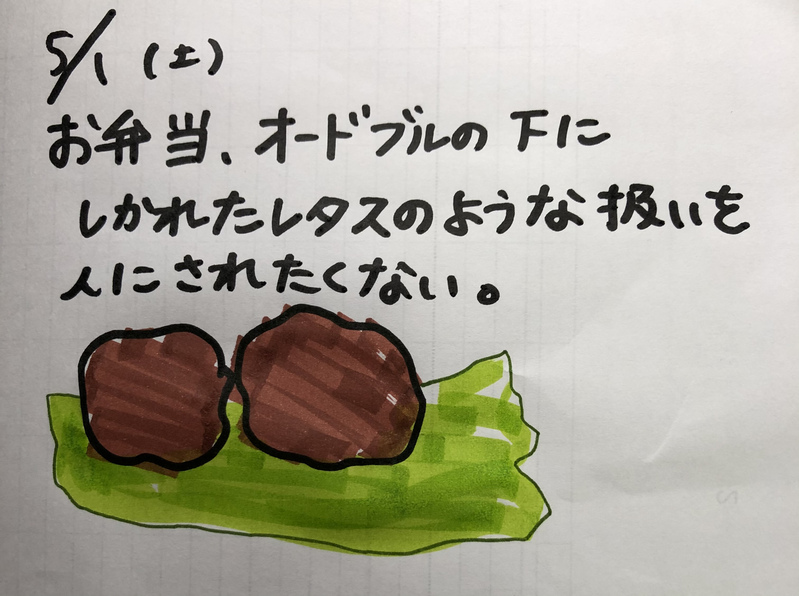 5/1 (土)
お弁当、オードブルの下に
しかれたレタスのような扱いを
人にされたくない。